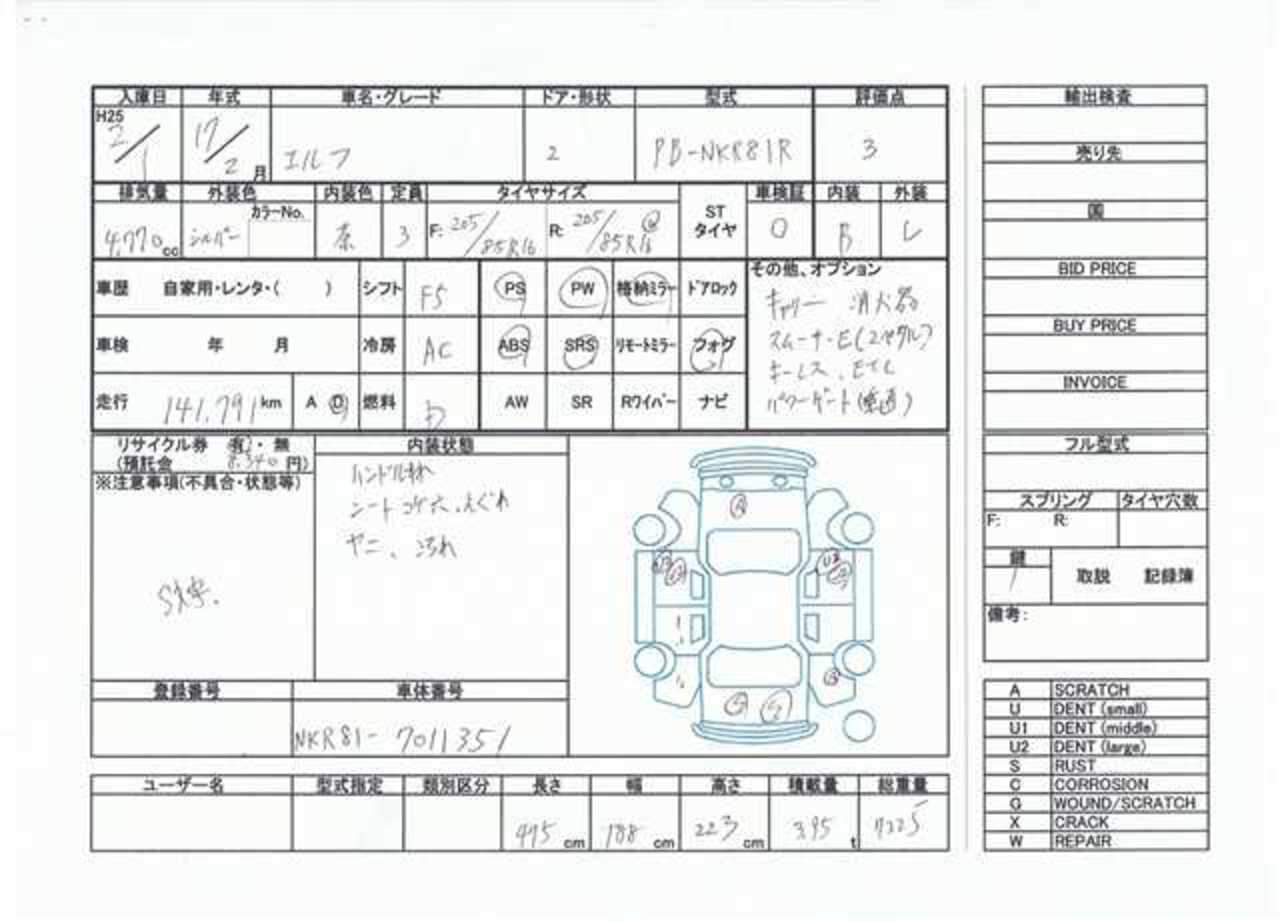 入庫日 年式 車名・グレード ドア・形状 型式 評価点
H25 2/1 17/2月 エルフ 2 PB-NKR81R 3
排気量 外装色 カラーNo. 内装色 定員 タイヤサイズ ST タイヤ 車検証 内装 外装
4,770cc シルバー 茶 3 F: 205/85R16 R: 205/85R16 O B
車歴 自家用・レンタ・( ) シフト F5 PS PW 格納ミラー ドアロック
その他、オプション
キャリー 消火器
スムーサーE(2ペダル)
キーレス、ETC
パワーゲート(垂直)
車検 年 月 冷房 AC ABS SRS リモートミラー フォグ
走行 141,791km A D 燃料 AW SR Rワイパー ナビ
リサイクル券 有・無
(預託金 8,340円)
※注意事項(不具合・状態等)
内装状態
ハンドルすれ
シートコゲ穴、えぐれ
ヤニ、汚れ
登録番号 車体番号
NKR81-7011351
ユーザー名 型式指定 類別区分 長さ 幅 高さ 積載量 総重量
475cm 188cm 223cm 3.95t 7325
輸出検査
売り先
国
BID PRICE
BUY PRICE
INVOICE
フル型式
スプリング タイヤ穴数
F: R:
鍵 1 取説 記録簿
備考:
A SCRATCH
U DENT (small)
U1 DENT (middle)
U2 DENT (large)
S RUST
C CORROSION
G WOUND/SCRATCH
X CRACK
W REPAIR